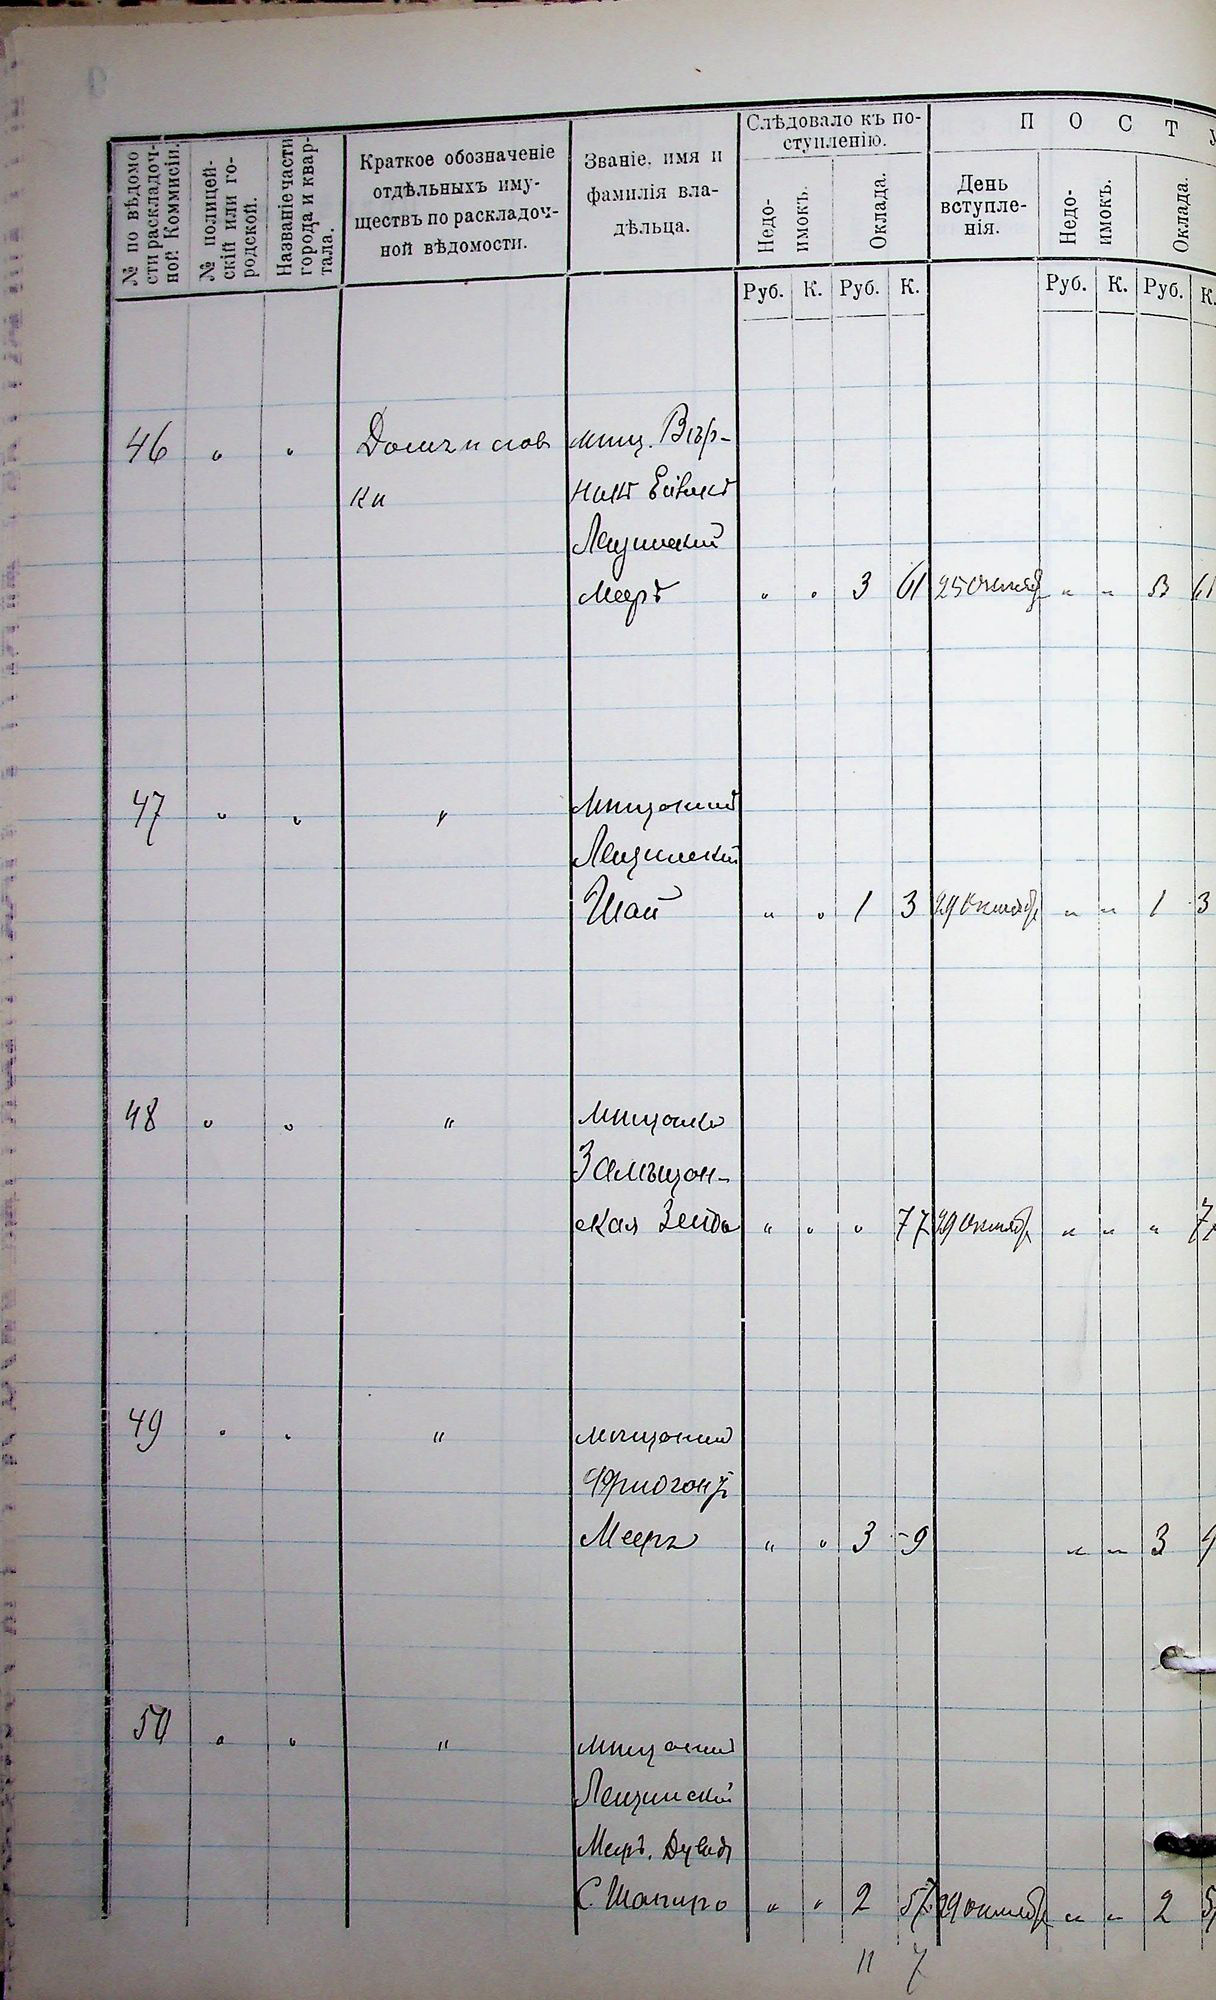 № по вѣдомо
сти раскладоч-
ной Коммисіи.
№ полицей-
скій или го-
родской.
Названіе части
города и квар-
тала.
Краткое обозначеніе
отдѣльныхъ иму-
ществъ по раскладоч-
ной вѣдомости.
Званіе, имя и
фамилія вла-
дѣльца.
Слѣдовало къ по-
ступленію.
Недо-
имокъ.
Оклада.
П О С Т У
День
вступле-
нія.
Недо-
имокъ.
Оклада.
Руб. К. Руб. К. Руб. К. Руб. К.
46 " " Домъ и лав мѣщ.
ки
Лещинскій
Мееръ " " 3 61 25 Октяб " " 3 61
47 " " " Мѣщанинъ
Лещинскій
Шай " " 1 3 29 Октяб " " 1 3
48 " " " Мѣщанка
ская Зелда " " " 77 29 Октяб " " " 77
49 " " " мѣщанинъ
Мееръ " " 3 9 " " 3 9
50 " " " мѣщанинъ
Лещинскій
Мееръ, Дувид
С. Шапиро " " 2 57 29 октяб " " 2 5
11 7